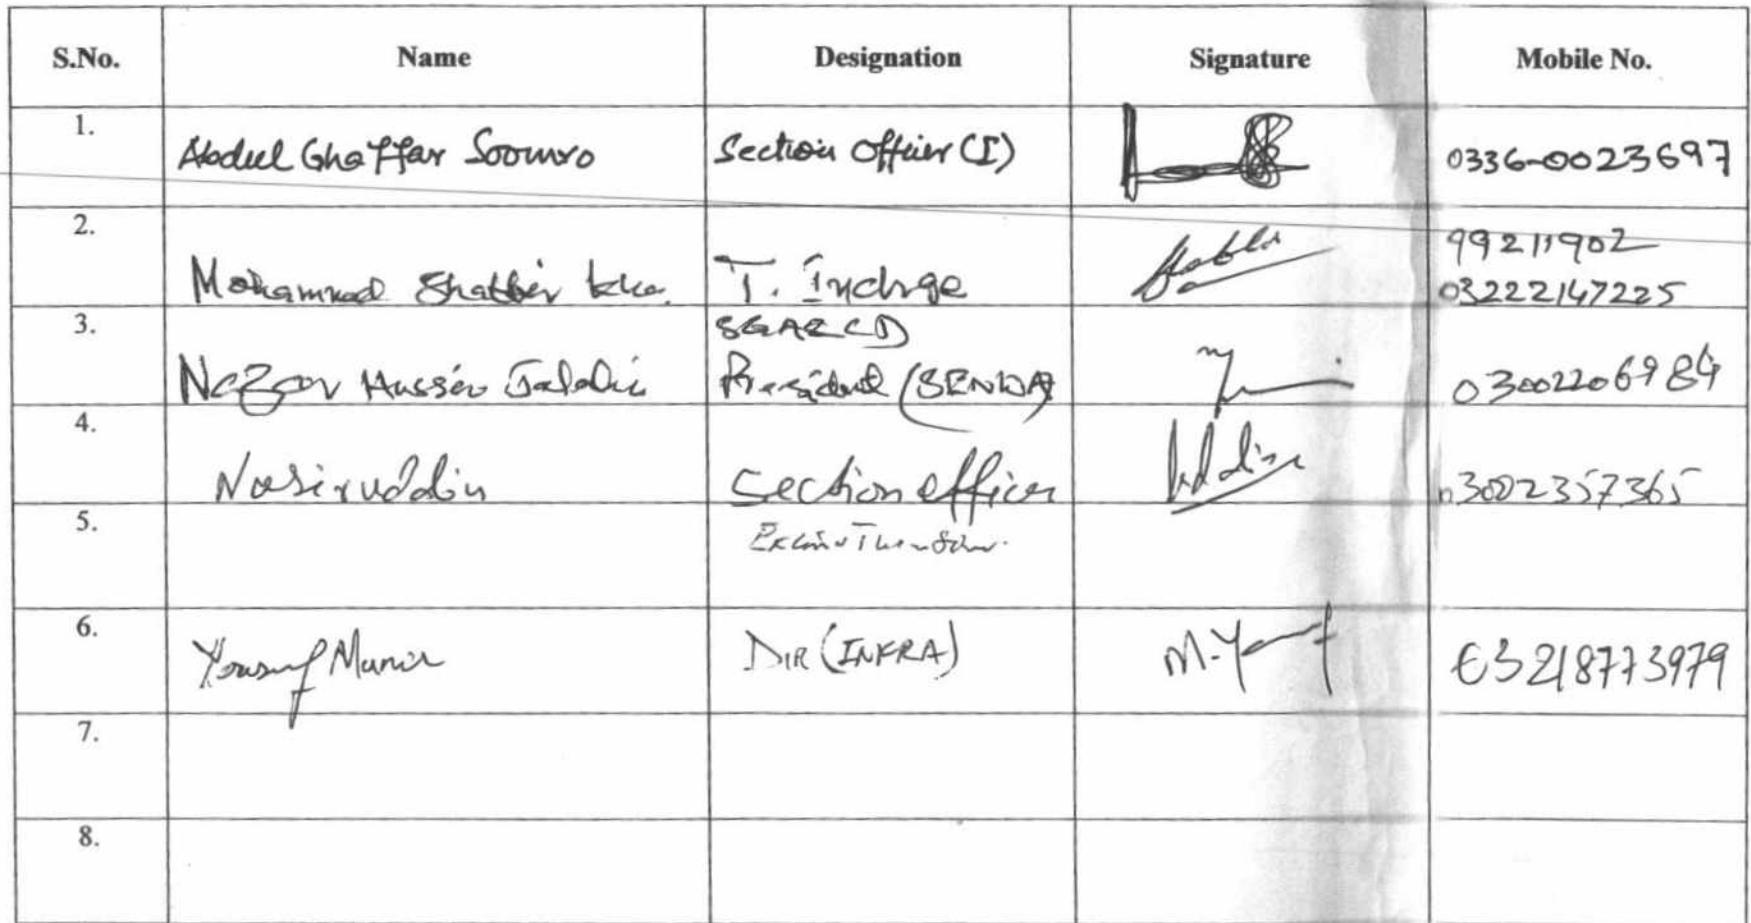 S.No. Name Designation Signature Mobile No.
1. Abdul Ghaffar Soomro Section Officer (I) 0336-0023697
2. 99211902
Mohammad Shabbir T. Inchrge 03222147225
3. SGA&CD
Nazar Hussin President (SENWA) 03002206984
4. Nasiruddin Section officer 03002357365
5.
6. Yousuf Munir DIR (INFRA) M. Yousuf 03218773979
7.
8.